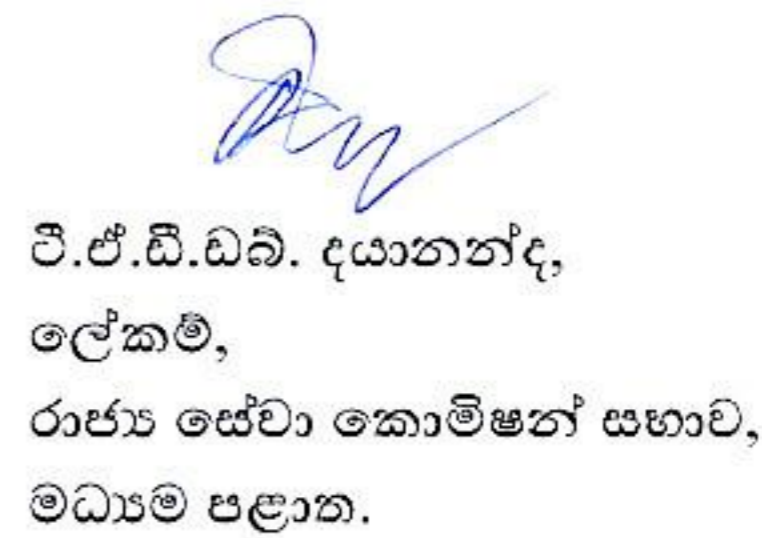 ටී.ඒ.ඩී.ඩබ්. දයානන්ද,
ලේකම්,
රාජ්‍ය සේවා කොමිෂන් සභාව,
මධ්‍යම පළාත.